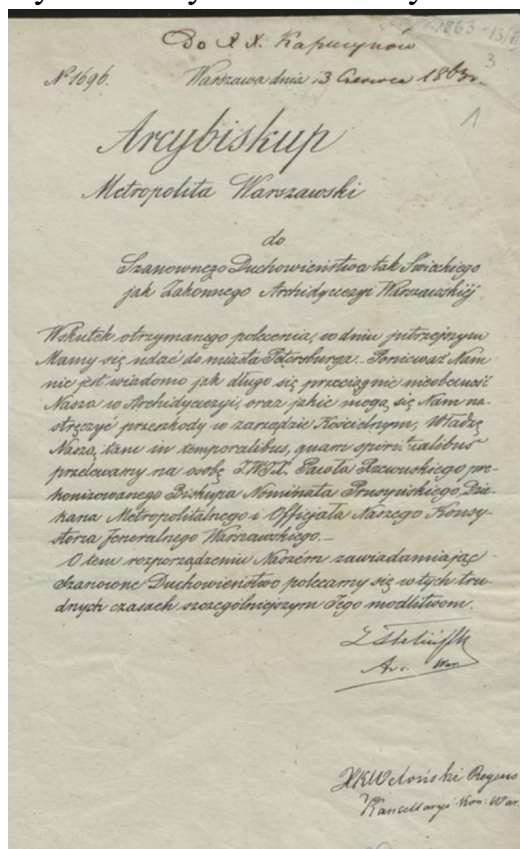 Do X X. Kapucynów
1863 - 13/VI
3
№ 1696. Warszawa dnia 13 Czerwca 1863r.
1
Arcybiskup
Metropolita Warszawski
do
Szanownego Duchowieństwa tak Świeckiego
jak Zakonnego Archidyecezyi Warszawskiéj
Wskutek otrzymanego polecenia, w dniu jutrzejszym
Mamy się udać do miasta Petersburga. Ponieważ Nam
nie jest wiadomo jak długo się przeciągnie nieobecność
Nasza w Archidyecezyi, oraz jakie mogą się Nam na-
stręczyć przeszkody w zarządzie Kościelnym, Władzę
Naszą, tam in temporalibus, quam spiritualibus
przelewamy na osobę JWJX. Pawła Rzewuskiego pre-
konizowanego Biskupa Nominata Prusyńskiego Dzie-
kana Metropolitalnego i Officjała Naszego Konsy-
storza Jeneralnego Warszawskiego. _
O tem rozporządzeniu Naszém zawiadamiając
Szanowne Duchowieństwo polecamy się w tych tru-
dnych czasach szczególniejszym Jego modlitwom.
Arc. War
Kancellaryi Kon: War.